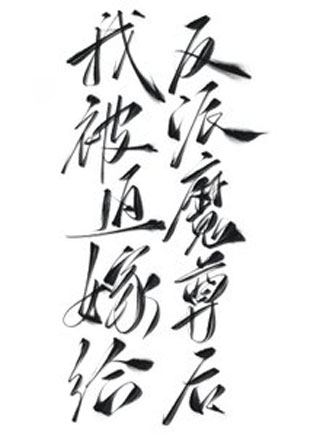 我被迫嫁给
反派魔尊后